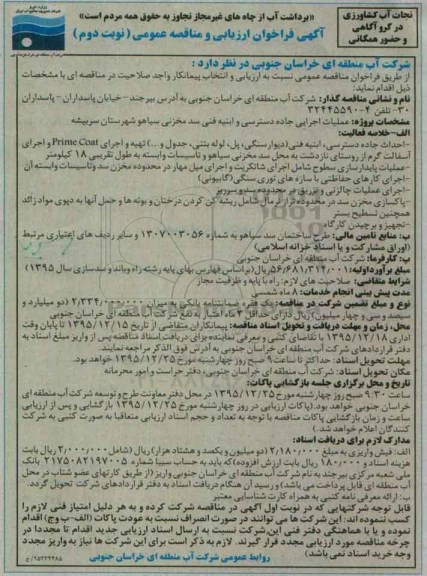 نجات آب کشاورزی
در گرو آگاهی
و حضور همگانی
«برداشت آب از چاه های غیرمجاز تجاوز به حقوق همه مردم است»
آگهی فراخوان ارزیابی و مناقصه عمومی (نوبت دوم)
شرکت آب منطقه ای خراسان جنوبی در نظر دارد :
از طریق فراخوان مناقصه عمومی نسبت به ارزیابی و انتخاب پیمانکار واجد صلاحیت در مناقصه ای با مشخصات
ذیل اقدام نماید:
نام و نشانی مناقصه گذار: شرکت آب منطقه ای خراسان جنوبی به آدرس بیرجند – خیابان پاسداران – پاسداران
۳۰- تلفن ۴-۳۲۴۴۵۵۹۰
مشخصات پروژه: عملیات اجرایی جاده دسترسی و ابنیه فنی سد مخزنی سیاهو شهرستان سربیشه
الف-خلاصه فعالیت:
-احداث جاده دسترسی، ابنیه فنی (دیوار سنگی، پل، لوله بتنی، جدول و ...) تهیه و اجرای Prime Coat و اجرای
آسفالت گرم از روستای تازدشت به محل سد مخزنی سیاهو و تاسیسات وابسته به طول تقریبی ۱۸ کیلومتر
-عملیات پایدارسازی سطوح شامل اجرای شاتکریت و اجرای میل مهار در محدوده مخزن سد وتاسیسات وابسته آن
-اجرای کارهای حفاظتی با سازه های توری سنگی (گابیونی)
-اجرای عملیات چالزنی و تزریق در محدوده سد و سرریز
-پاکسازی مخزن سد در محدوده تراز نرمال شامل ریشه کن کردن درختان و بوته ها و حمل آنها به دپوی مواد زائد
همچنین تسطیح بستر
-تجهیز و برچیدن کارگاه
ب: منابع تامین مالی: طرح ساختمان سد سیاهو به شماره ۱۳۰۷۰۰۳۰۵۶ و سایر ردیف های اعتباری مرتبط
(اوراق مشارکت و یا اسناد خزانه اسلامی)
پ: کارفرما: شرکت آب منطقه ای خراسان جنوبی
مبلغ برآورد اولیه: ۵۶/۶۸۱/۳۱۴/۰۰۱ ریال (براساس فهارس بهای پایه رشته راه وباند و سدسازی سال ۱۳۹۵)
شرایط متقاضی: صلاحیت های لازم: راه با پایه و ظرفیت مجاز
مدت پیش بینی انجام خدمات: ۸ ماه شمسی
نوع و مبلغ تضمین شرکت در مناقصه: یک فقره ضمانتنامه بانکی به میزان ۲/۳۳۴/۰۰۰/۰۰۰ (دو میلیارد و
سیصد و سی و چهار میلیون) ریال دارای حداقل ۳ ماه اعتبار به نفع شرکت آب منطقه ای خراسان جنوبی
محل، زمان و مهلت دریافت و تحویل اسناد مناقصه: پیمانکاران متقاضی از تاریخ ۱۳۹۵/۱۲/۱۵ تا پایان وقت
اداری ۱۳۹۵/۱۲/۱۸ با تقاضای کتبی و معرفی نماینده برای دریافت اسناد مناقصه پس از واریز مبلغ اسناد به
دفتر قراردادهای شرکت آب منطقه ای خراسان جنوبی به آدرس فوق الذکر مراجعه نمایند.
مهلت تحویل اسناد: حداکثر تا ساعت ۹ صبح روز چهارشنبه مورخ ۱۳۹۵/۱۲/۲۵ خواهد بود.
مکان تحویل اسناد: شرکت آب منطقه ای خراسان جنوبی، دفتر حراست و امور محرمانه
تاریخ و محل برگزاری جلسه بازگشایی پاکات:
ساعت ۹:۳۰ صبح روز چهارشنبه مورخ ۱۳۹۵/۱۲/۲۵ در محل دفتر معاونت طرح و توسعه شرکت آب منطقه ای
خراسان جنوبی خواهد بود. (پاکات ارزیابی در روز چهارشنبه مورخ ۱۳۹۵/۱۲/۲۵ بازگشایی و پس از ارزیابی
ساعت و زمان بازگشایی پاکات مناقصه با توجه به تعداد و حجم اسناد ارزیابی متعاقبا به صورت کتبی به شرکت
کنندگان اعلام خواهد شد.)
مدارک لازم برای دریافت اسناد:
الف: فیش واریزی به مبلغ ۲/۱۸۰/۰۰۰ (دو میلیون و یکصد و هشتاد هزار) ریال (شامل ۲/۰۰۰/۰۰۰ ریال بابت
هزینه اسناد و ۱۸۰/۰۰۰ ریال بابت ارزش افزوده) که باید به حساب سیبا شماره ۲۱۷۵۰۸۲۱۹۷۰۰۵ بانک
ملی شعبه مرکزی بیرجند به نام شرکت آب منطقه ای خراسان جنوبی واریز (از طریق کارتهای عضو شتاب در محل
آب منطقه ای قابل پرداخت می باشد) و رسید آن هنگام دریافت اسناد به دفتر قراردادهای شرکت تحویل گردد.
ب: ارائه معرفی نامه کتبی به همراه کارت شناسایی معتبر
قابل توجه شرکتهایی که در نوبت اول آگهی در مناقصه شرکت کرده و به هر دلیل امتیاز فنی لازم را
کسب ننموده اند: این شرکت ها می توانند در صورت انصراف نسبت به عودت پاکات (الف-ب-ج) اقدام
نموده و یا با هماهنگی دفتر فنی این شرکت نسبت به ارسال اسناد ارزیابی جدید اقدام تا مجددا در
چرخه مناقصه مورد ارزیابی مجدد قرار گیرند. لازم به ذکر است برای این شرکت ها نیاز به واریز مجدد
وجه خرید اسناد نمی باشد)
روابط عمومی شرکت آب منطقه ای خراسان جنوبی